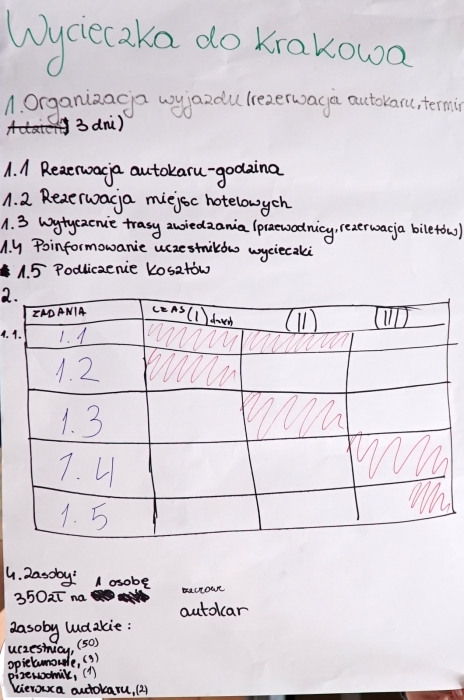 Wycieczka do Krakowa
1. Organizacja wyjazdu (rezerwacja autokaru, termin
3 dni)
1.1 Rezerwacja autokaru-godzina
1.2 Rezerwacja miejsc hotelowych
1.3 Wytyczenie trasy zwiedzania (przewodnicy, rezerwacja biletów)
1.4 Poinformowanie uczestników wycieczki
1.5 Podliczenie kosztów
2.
ZADANIA CZAS (I) (II) (III)
1.1. 1.1
1.2
1.3
1.4
1.5
4. Zasoby:
350zł na 1 osobę
rzeczowe
autokar
Zasoby ludzkie:
uczestnicy, (50)
opiekunowie, (3)
przewodnik, (1)
kierowca autokaru, (2)